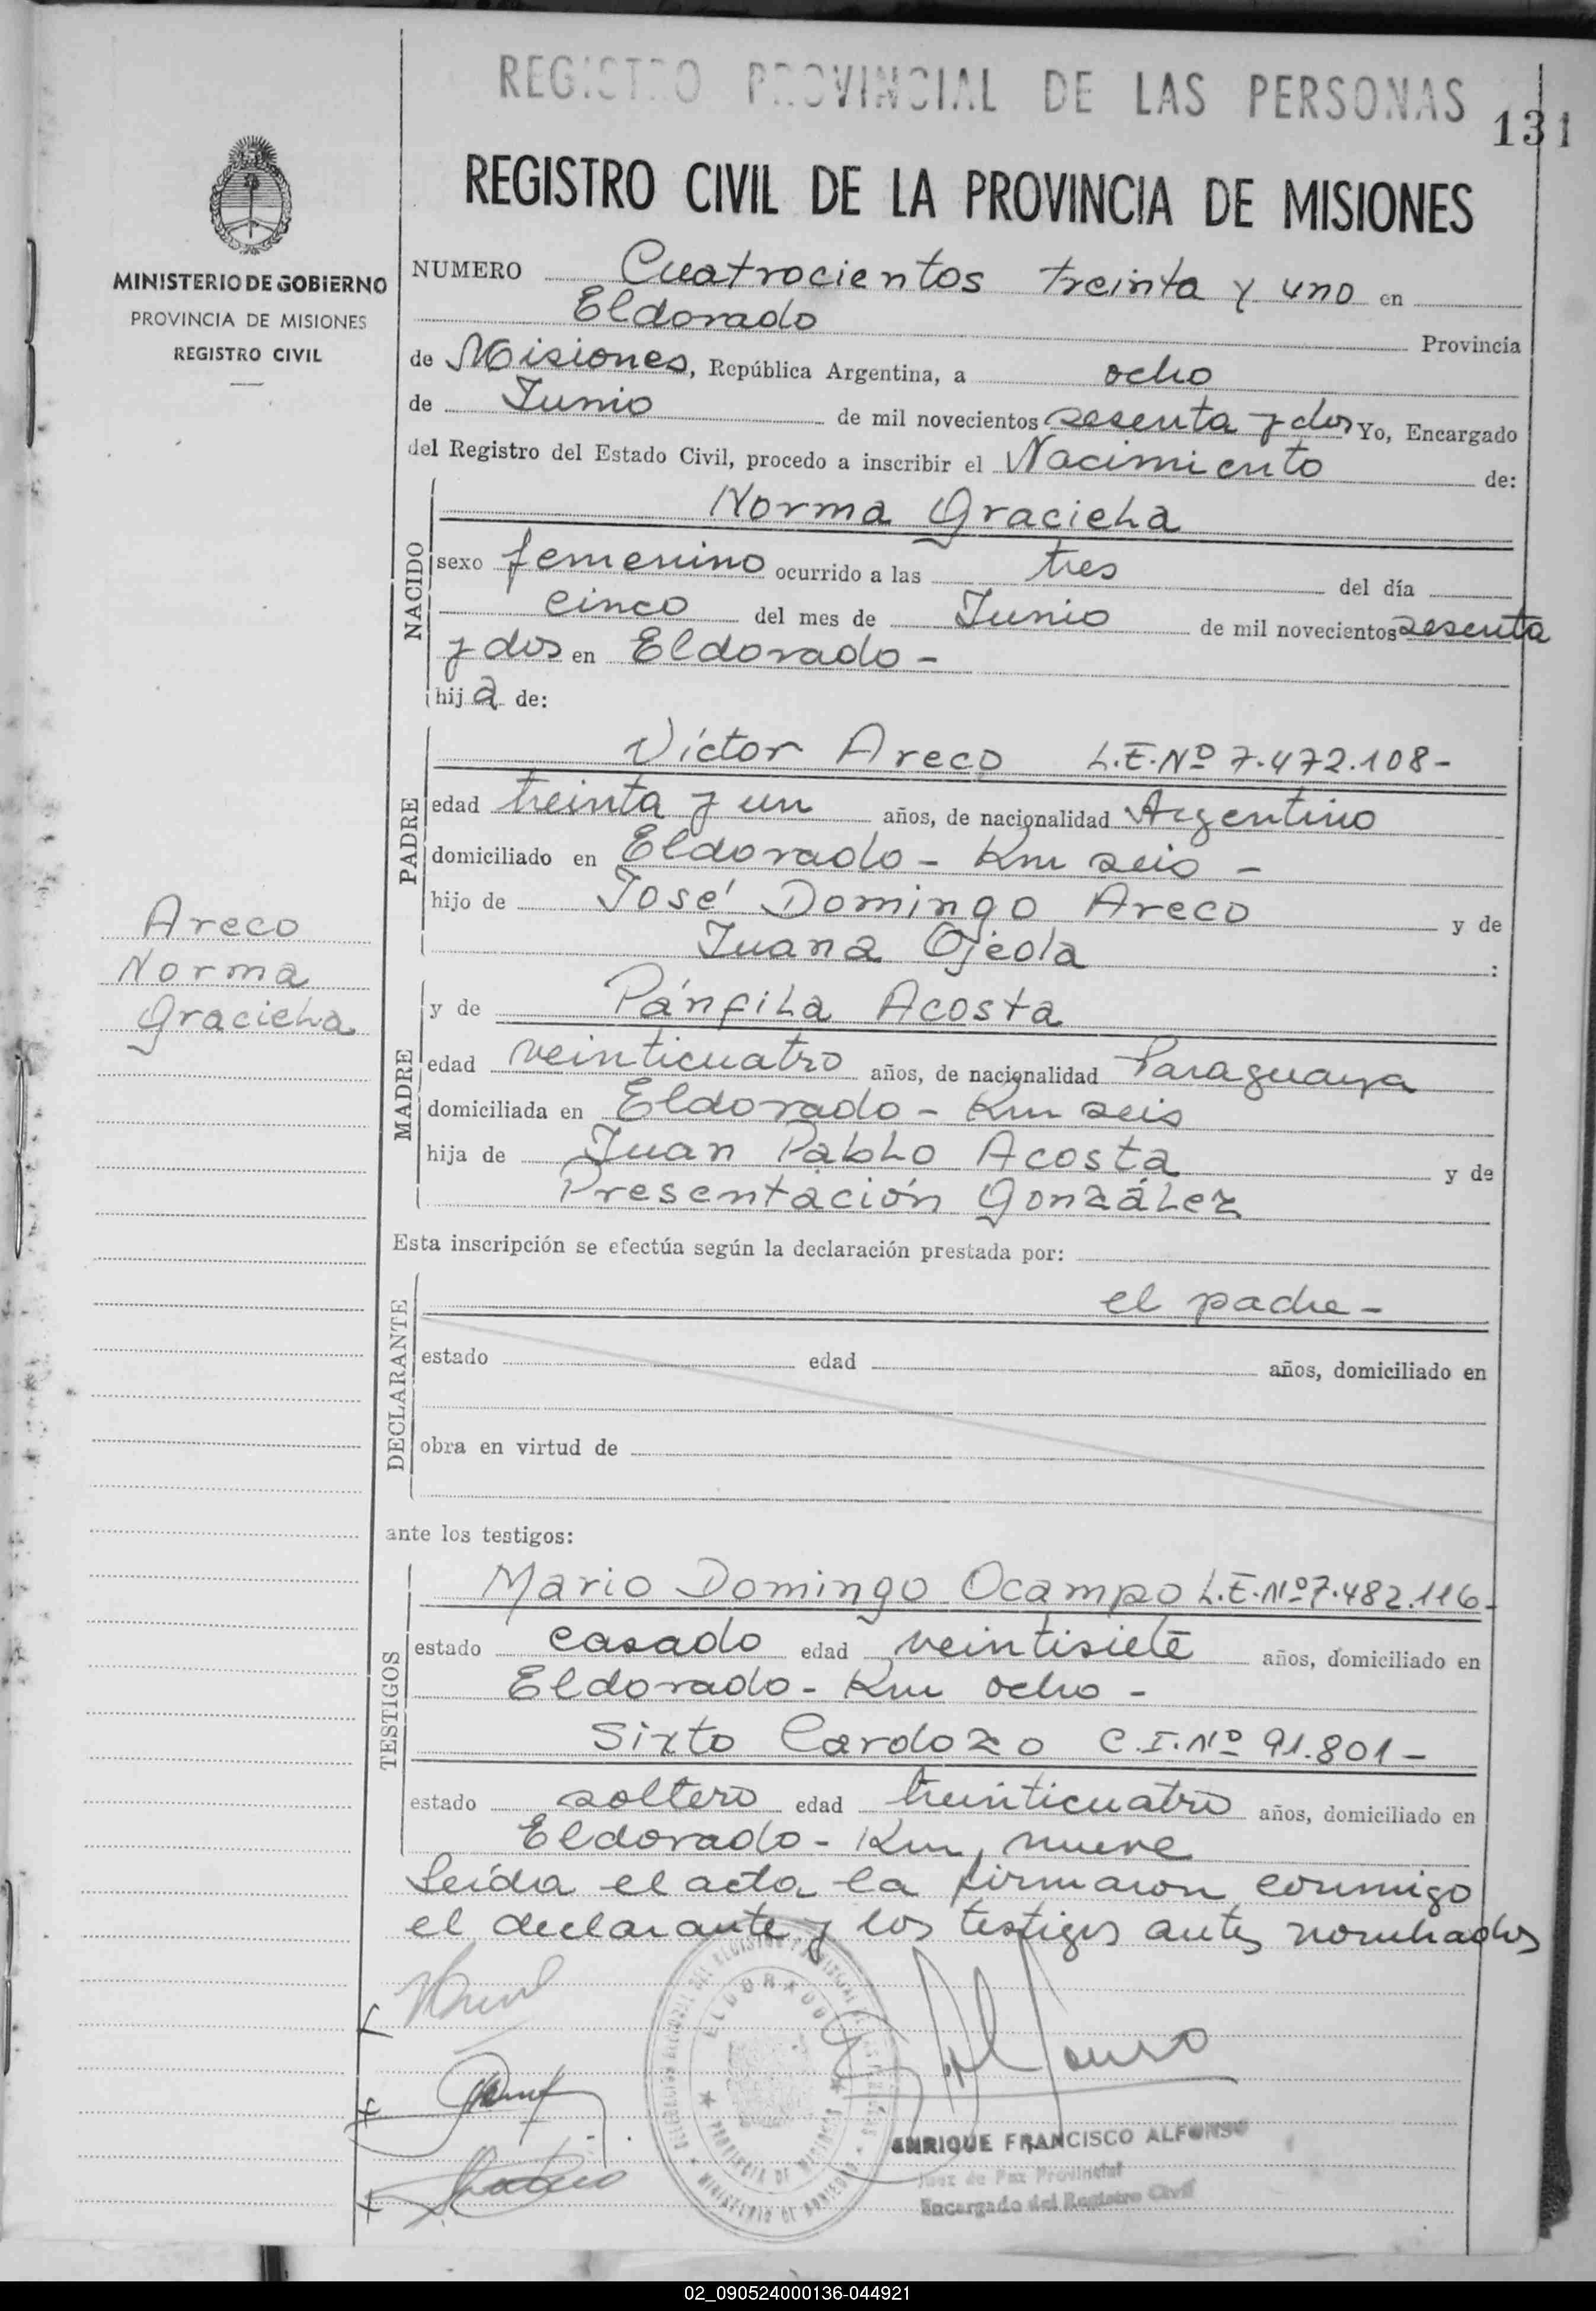 REGISTRO PROVINCIAL DE LAS PERSONAS
131
REGISTRO CIVIL DE LA PROVINCIA DE MISIONES
MINISTERIO DE GOBIERNO
PROVINCIA DE MISIONES
REGISTRO CIVIL
NUMERO Cuatrocientos treinta y uno en
Eldorado Provincia
de Misiones, República Argentina, a ocho
de Junio de mil novecientos sesenta y dos Yo, Encargado
del Registro del Estado Civil, procedo a inscribir el Nacimiento de:
NACIDO
Norma Graciela
sexo femenino ocurrido a las tres del día
cinco del mes de Junio de mil novecientos sesenta
y dos en Eldorado -
hija de:
PADRE
Víctor Areco L.E.Nº 7.472.108-
edad treinta y un años, de nacionalidad Argentino
domiciliado en Eldorado - Km seis -
hijo de José Domingo Areco y de
Juana Ojeda :
Areco
Norma
Graciela
MADRE
y de Pánfila Acosta
edad veinticuatro años, de nacionalidad Paraguaya
domiciliada en Eldorado - Km seis
hija de Juan Pablo Acosta y de
Presentación González
Esta inscripción se efectúa según la declaración prestada por:
DECLARANTE
el padre -
estado edad años, domiciliado en
obra en virtud de
ante los testigos:
TESTIGOS
Mario Domingo Ocampo L.E.Nº 7.482.116-
estado casado edad veintisiete años, domiciliado en
Eldorado - Km ocho -
Sixto Cardozo C.I.Nº 91.801-
estado soltero edad treinticuatro años, domiciliado en
Eldorado - Km nueve
Leída el acta la firmaron conmigo
el declarante y los testigos antes nombrados
ELDORADO
PROVINCIA DE MISIONES
MINISTERIO DE GOBIERNO
ENRIQUE FRANCISCO ALFONSO
Juez de Paz Provincial
Encargado del Registro Civil
02_090524000136-044921